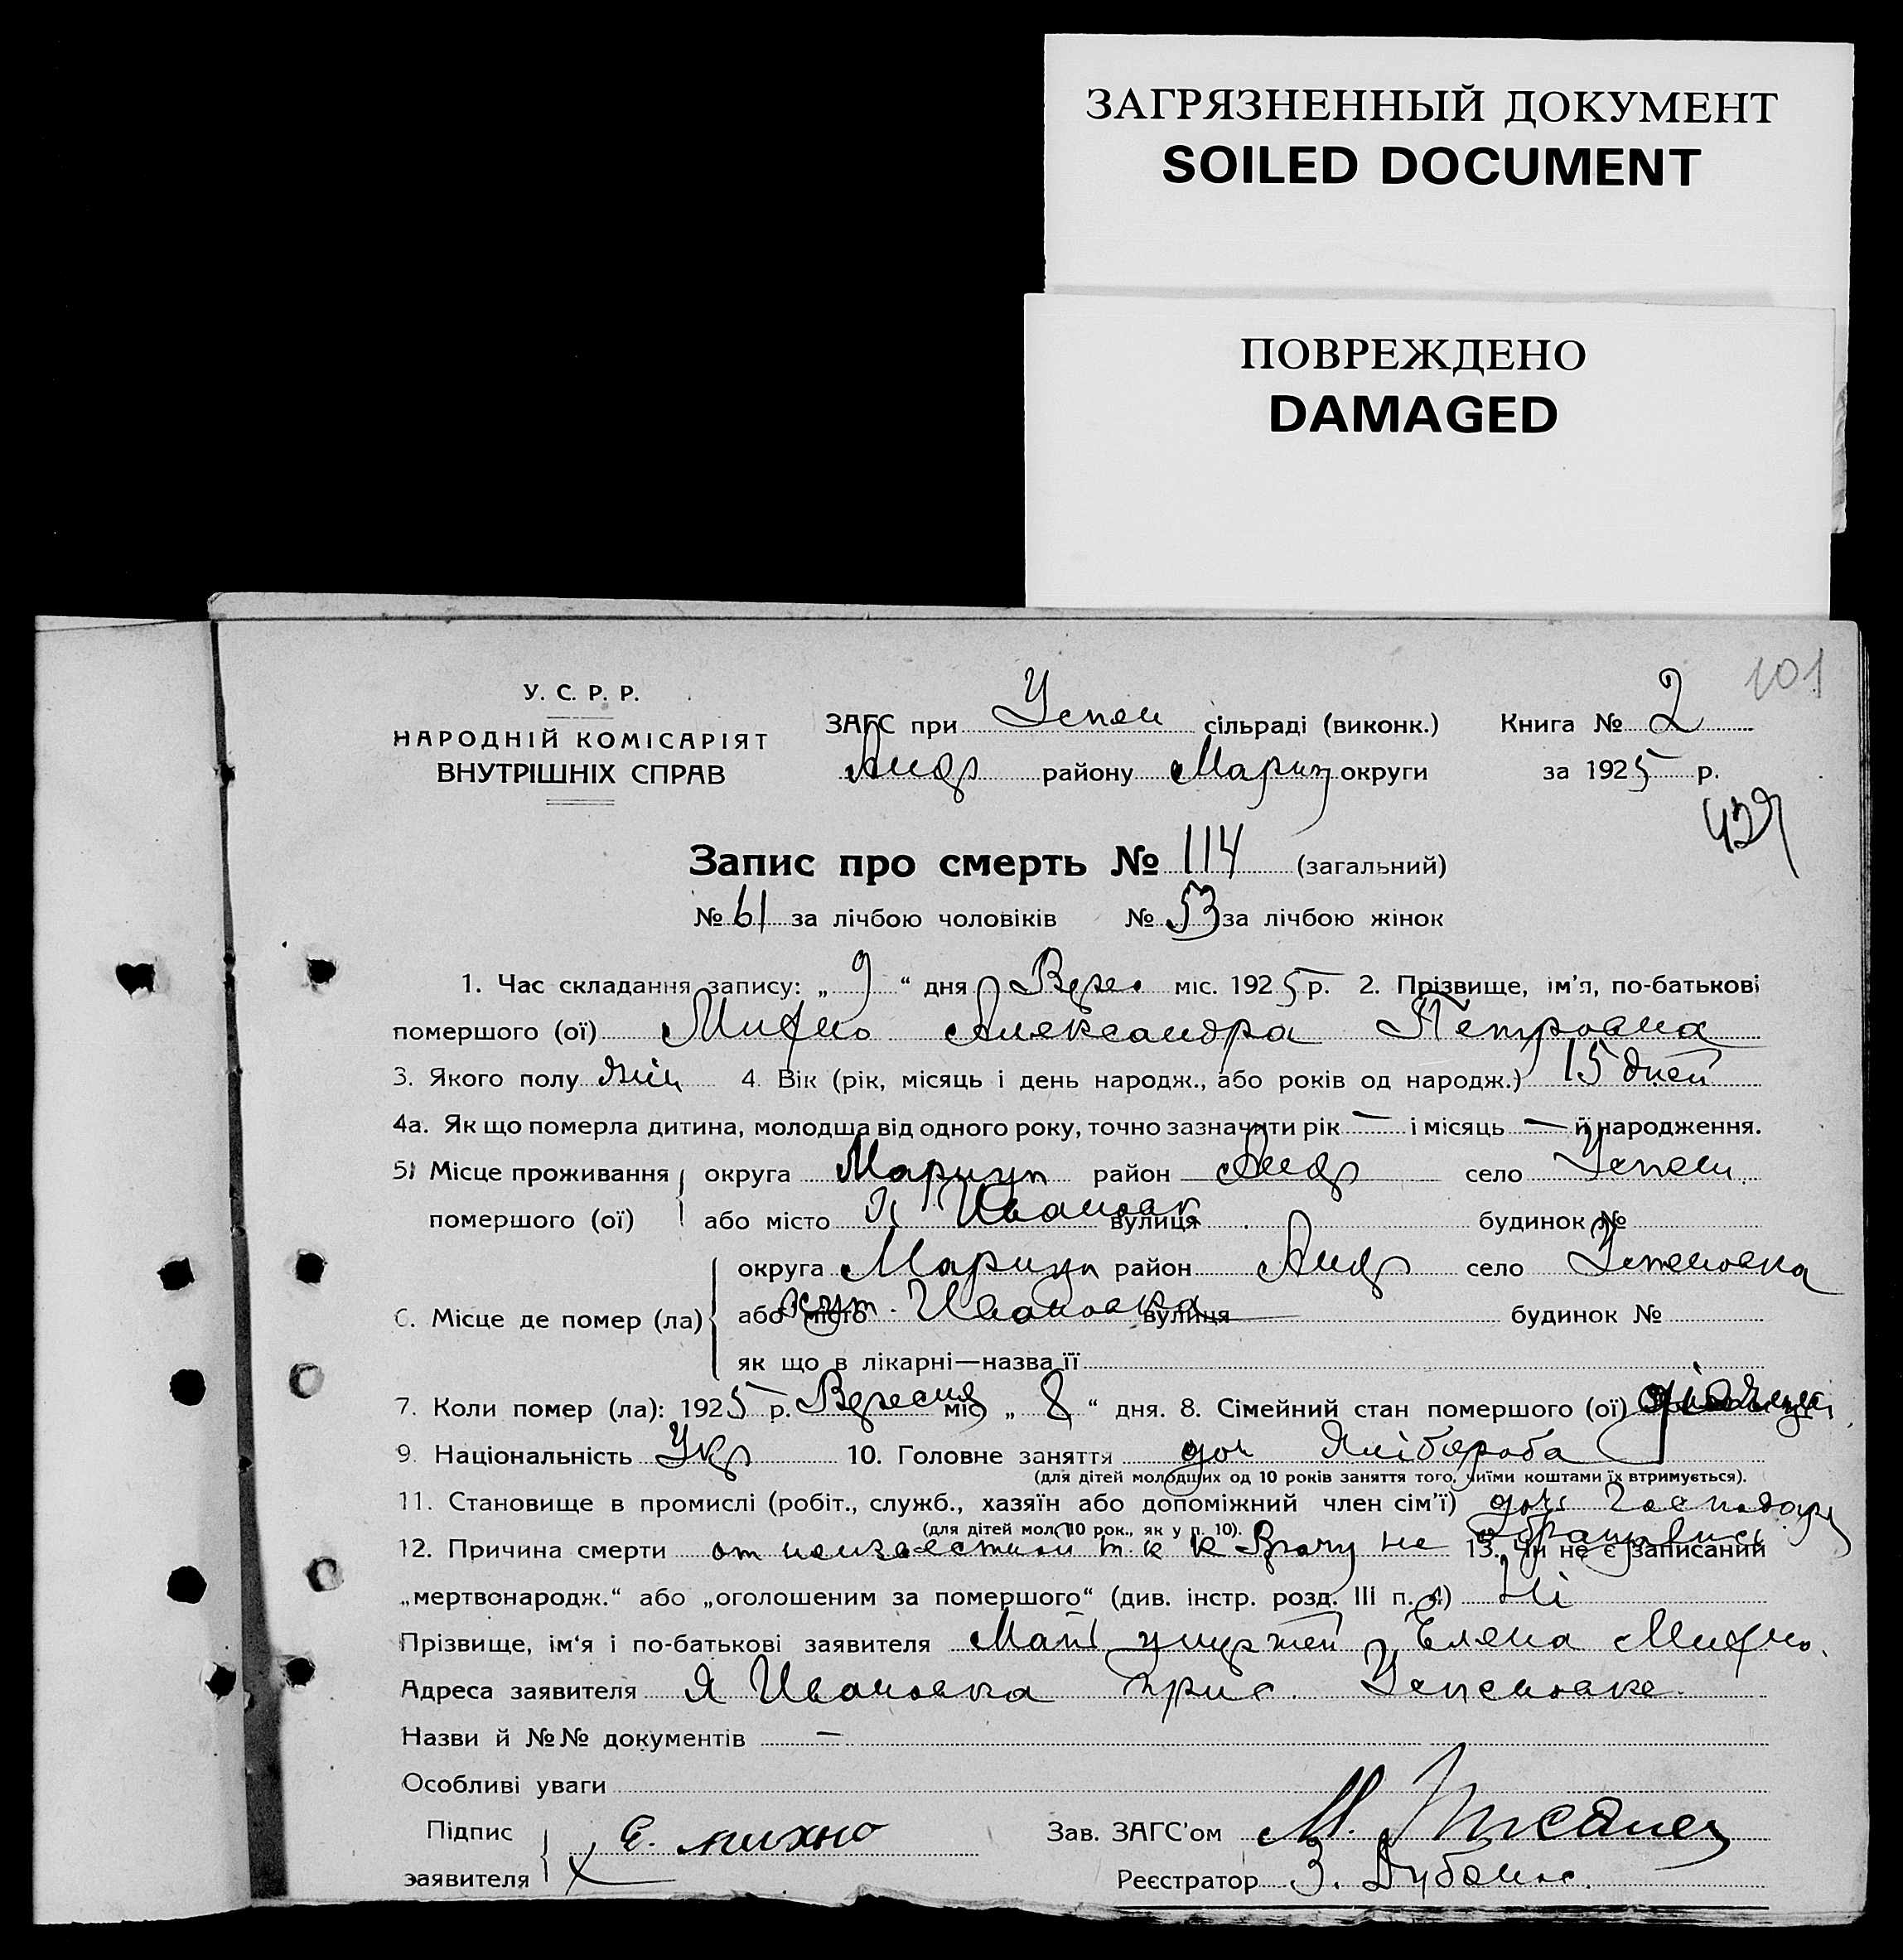 ЗАГРЯЗНЕННЫЙ ДОКУМЕНТ
SOILED DOCUMENT
ПОВРЕЖДЕНО
DAMAGED
101
У. С. Р. Р.
НАРОДНІЙ КОМІСАРІЯТ
ВНУТРІШНІХ СПРАВ
ЗАГС при Успен сільраді (виконк.) Книга № 2
Андр району Мариуп округи за 1925 р.
Запис про смерть № 114 (загальний)
№ 61 за лічбою чоловіків № 53 за лічбою жінок
1. Час складання запису: „ 9 “ дня Верес міс. 1925 р. 2. Прізвище, ім'я, по-батькові
помершого (ої) Михно Александра Петровна
3. Якого полу жін 4. Вік (рік, місяць і день народж., або років од народж.) 15 дней
4а. Як що померла дитина, молодша від одного року, точно зазначити рік — і місяць — її народження.
5) Місце проживання округа Мариуп район Андр село Успен
помершого (ої) або місто вулиця будинок №
округа Мариуп район Андр село Успеновка
6. Місце де помер (ла) або місто хут. Ивановка вулиця будинок №
як що в лікарні—назва її
7. Коли помер (ла): 1925 р. Вересня міс „ 8 “ дня. 8. Сімейний стан помершого (ої)
9. Національність Укр 10. Головне заняття доч хлібороба
(для дітей молодших од 10 років заняття того, чиїми коштами їх втримується).
11. Становище в промислі (робіт., служб., хазяїн або допоміжний член сім'ї) доч господаря
(для дітей мол. 10 рок., як у п. 10).
12. Причина смерти от неизвестной т. к к врачу не обращались 13. Чи не є записаний
„мертвонародж.“ або „оголошеним за помершого“ (див. інстр. розд. III п. 4) Ні
Прізвище, ім'я і по-батькові заявителя Мати умершей Елена Михно.
Адреса заявителя х Ивановка при с. Успеновке.
Назви й №№ документів —
Особливі уваги
Підпис
заявителя Е. михно
Зав. ЗАГС'ом М.
Реєстратор З.